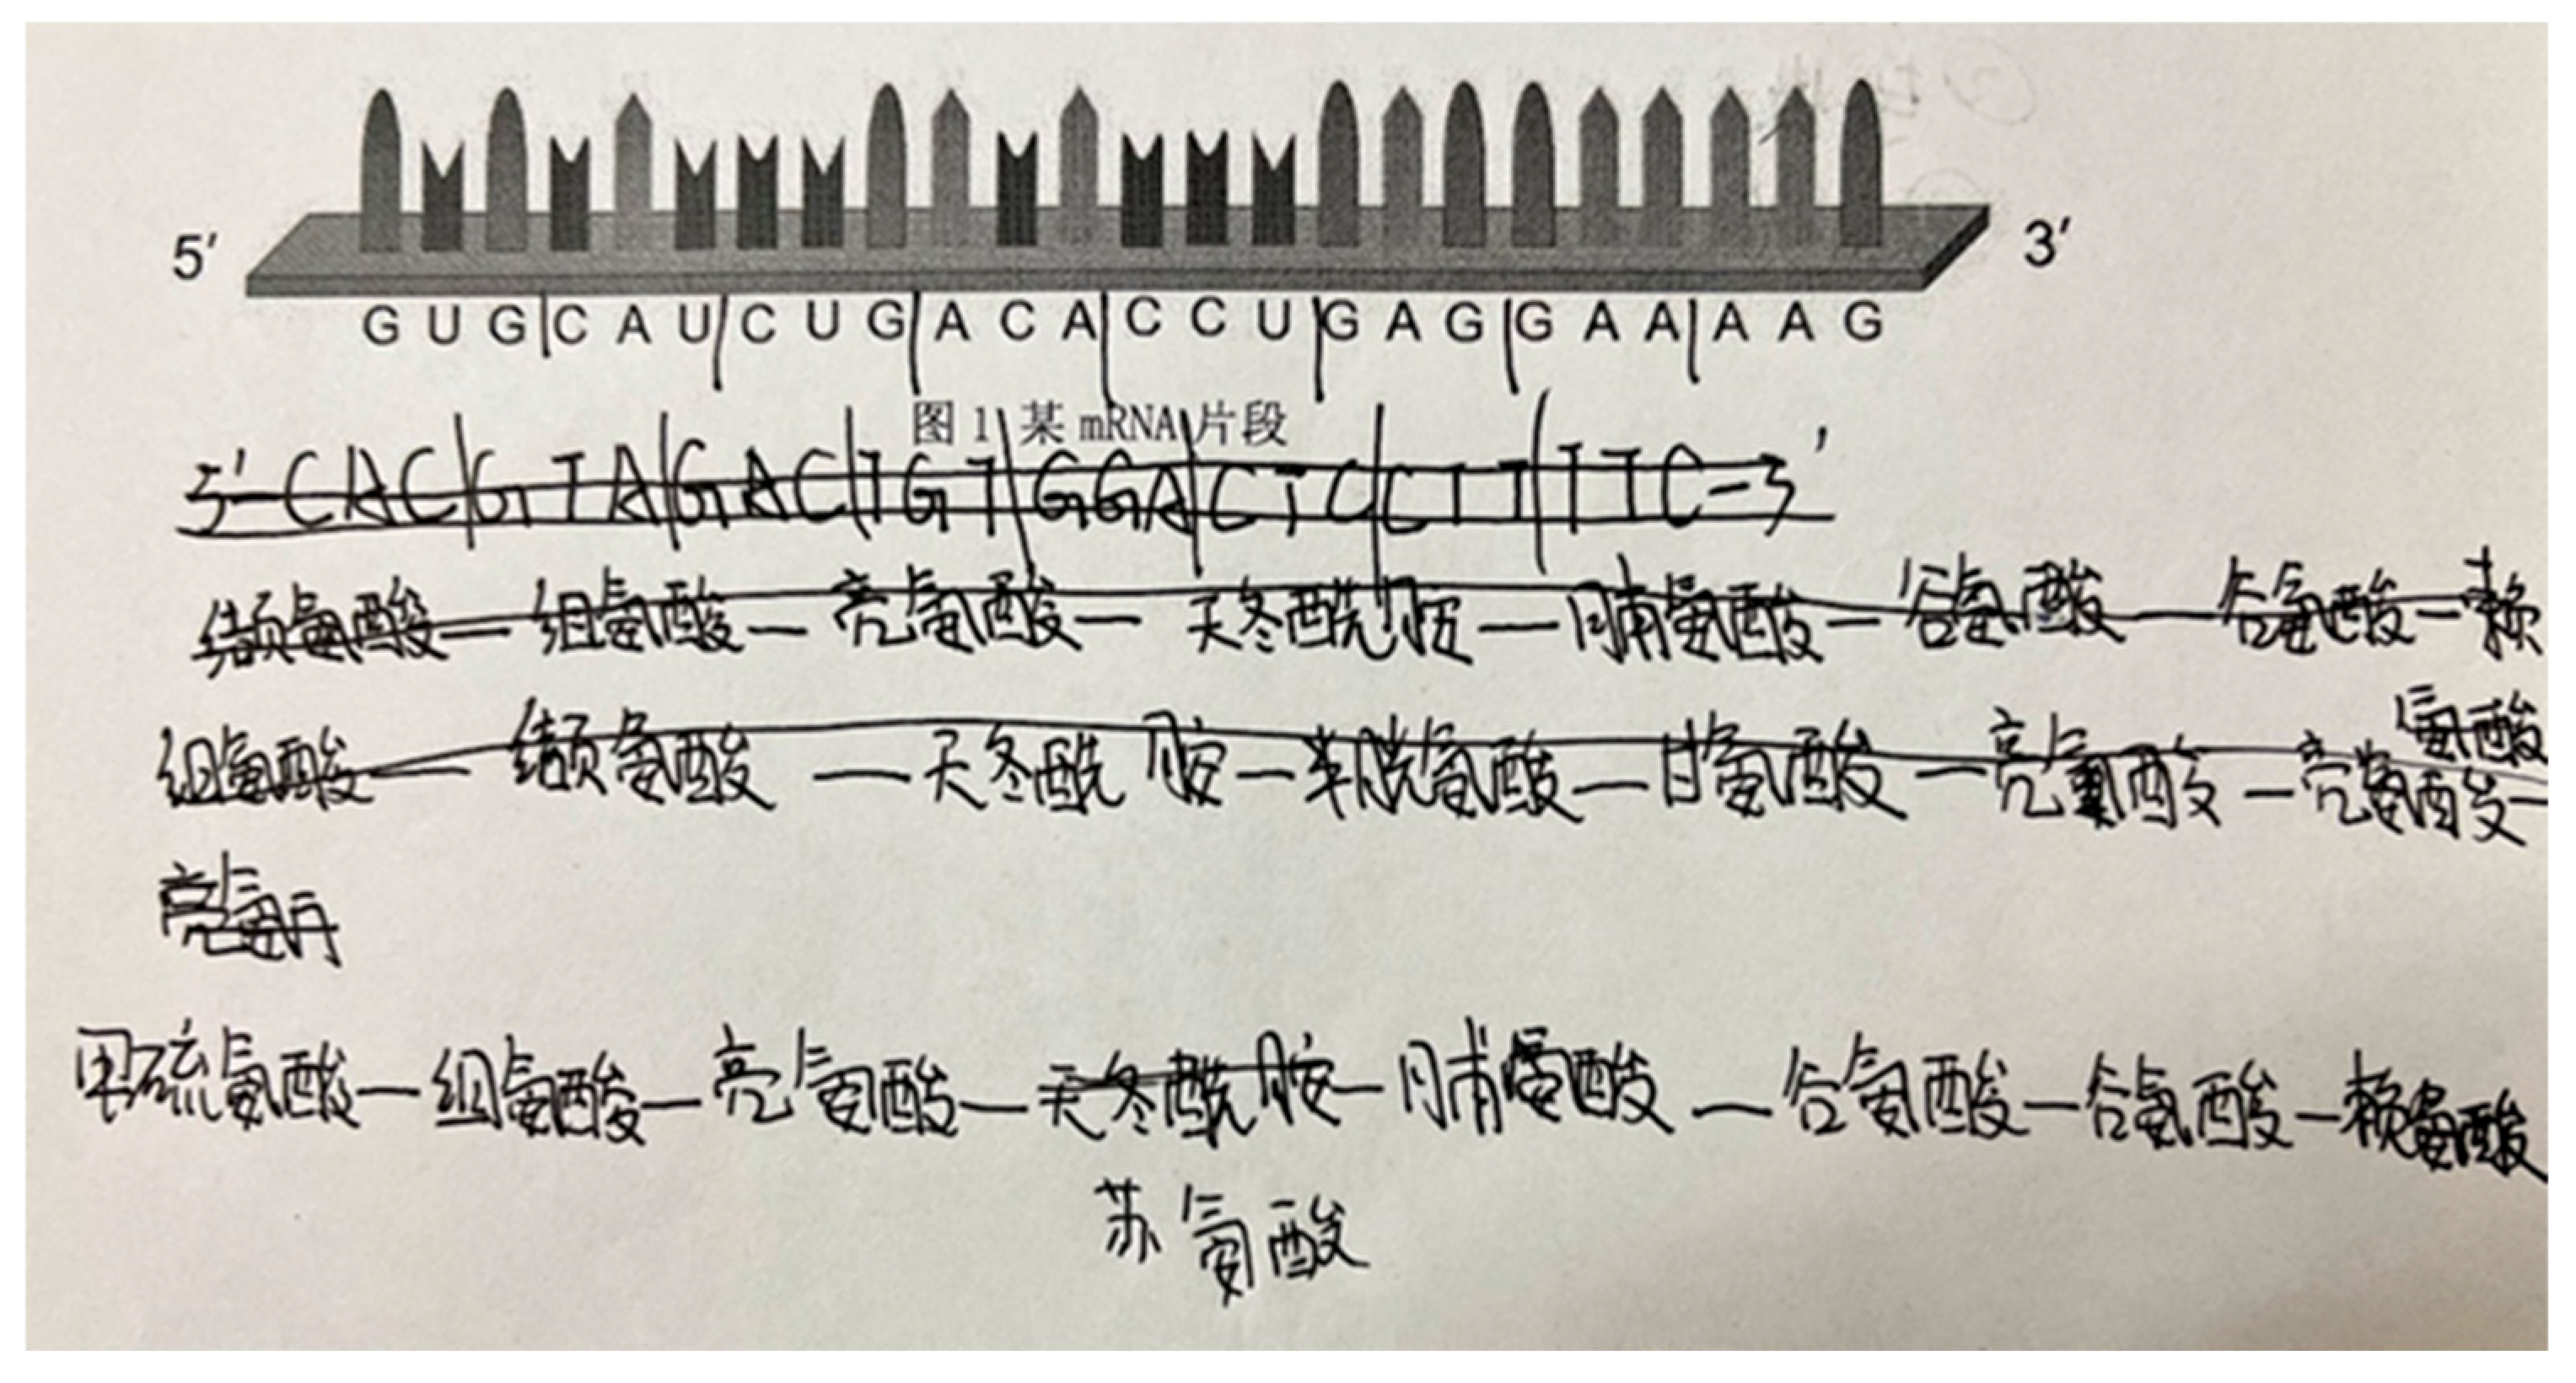 5′ 3′
G U G C A U C U G A C A C C U G A G G A A A A G
图 1 某 mRNA 片段
5′-CAC GTA GAC TGT GGA CTC CTT TTC-3′
缬氨酸—组氨酸—亮氨酸—天冬酰胺—脯氨酸—谷氨酸—谷氨酸—赖
氨酸
组氨酸—缬氨酸—天冬酰胺—半胱氨酸—甘氨酸—亮氨酸—亮氨酸—
亮氨
甲硫氨酸—组氨酸—亮氨酸—天冬酰胺—脯氨酸—谷氨酸—谷氨酸—赖氨酸
苏氨酸